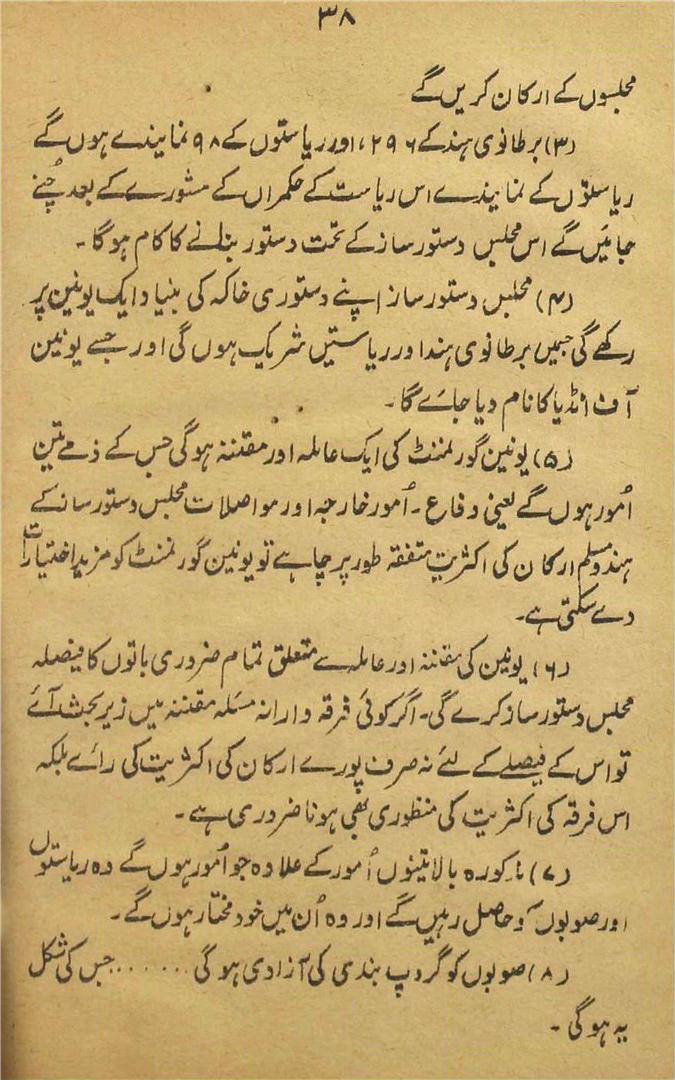 ۳۸
مجلسوں کے ارکان کریں گے
(۳) برطانوی ہند کے ۲۹۶، اور ریاستوں کے ۹۸ نمایندے ہوں گے
ریاستوں کے نمایندے اس ریاست کے حکمراں کے مشورے کے بعد چُنے
جائیں گے اس مجلس دستور ساز کے تحت دستور بنانے کا کام ہوگا۔
(۴) مجلس دستور ساز اپنے دستوری خاکہ کی بنیاد ایک یونین پر
رکھے گی جسمیں برطانوی ہند اور ریاستیں شریک ہوں گی اور جسے یونین
آف انڈیا کا نام دیا جائے گا۔
(۵) یونین گورنمنٹ کی ایک عاملہ اور مقننہ ہوگی جس کے ذمے تین
اُمور ہوں گے یعنی دفاع۔ اُمور خارجہ اور مواصلات مجلس دستور ساز کے
ہندو مسلم ارکان کی اکثریت متفقہ طور پر چاہے تو یونین گورنمنٹ کو مزید اختیارات
دے سکتی ہے۔
(۶) یونین کی مقننہ اور عاملہ سے متعلق تمام ضروری باتوں کا فیصلہ
مجلس دستور ساز کرے گی۔ اگر کوئی فرقہ وارانہ مسئلہ مقننہ میں زیر بحث آئے
تو اس کے فیصلے کے لئے نہ صرف پورے ارکان کی اکثریت کی رائے بلکہ
اس فرقہ کی اکثریت کی منظوری بھی ہونا ضروری ہے۔
(۷) مذکورہ بالا تینوں اُمور کے علاوہ جو اُمور ہوں گے وہ ریاستوں
اور صوبوں کو حاصل رہیں گے اور وہ اُن میں خود مختار ہوں گے۔
(۸) صوبوں کو گروپ بندی کی آزادی ہوگی ....... جس کی شکل
یہ ہوگی۔